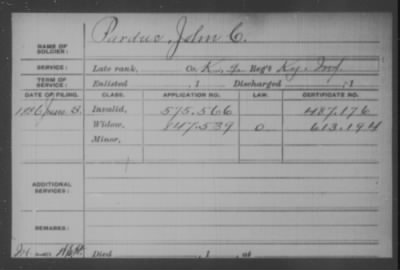 NAME OF SOLDIER: Purdue, John C.
SERVICE: Late rank, Co. K, Reg't Ky. Inf.
TERM OF SERVICE: Enlisted , 1 Discharged , 1
DATE OF FILING. CLASS. APPLICATION NO. LAW. CERTIFICATE NO.
1886 June Invalid, 575.566 487.176
Widow, 847.539 0 613.194
Minor,
ADDITIONAL SERVICES:
REMARKS:
Died , 1 , at